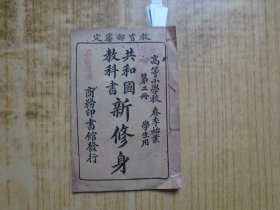 教育部審定
高等小學校 春季始業
第二冊 學生用
共和國
教科書
新修身
商務印書館發行